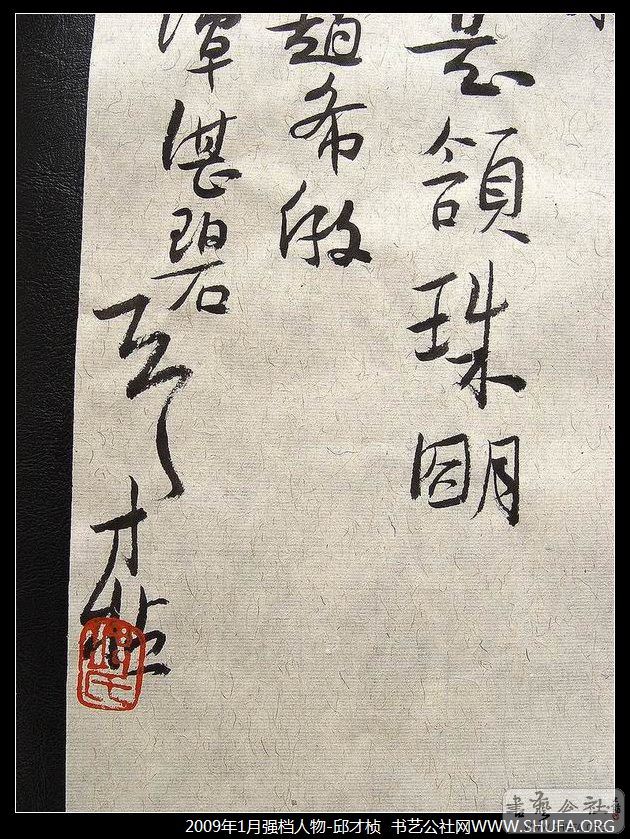 領珠朙
趙希做
潭湛碧
才
2009年1月强档人物-邱才桢 书艺公社网WWW.SHUFA.ORG
書藝公社